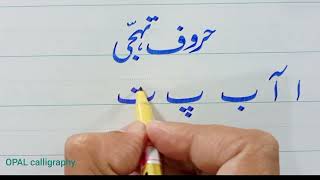 حروف تہجّی
ا آ ب پ ت
OPAL calligraphy